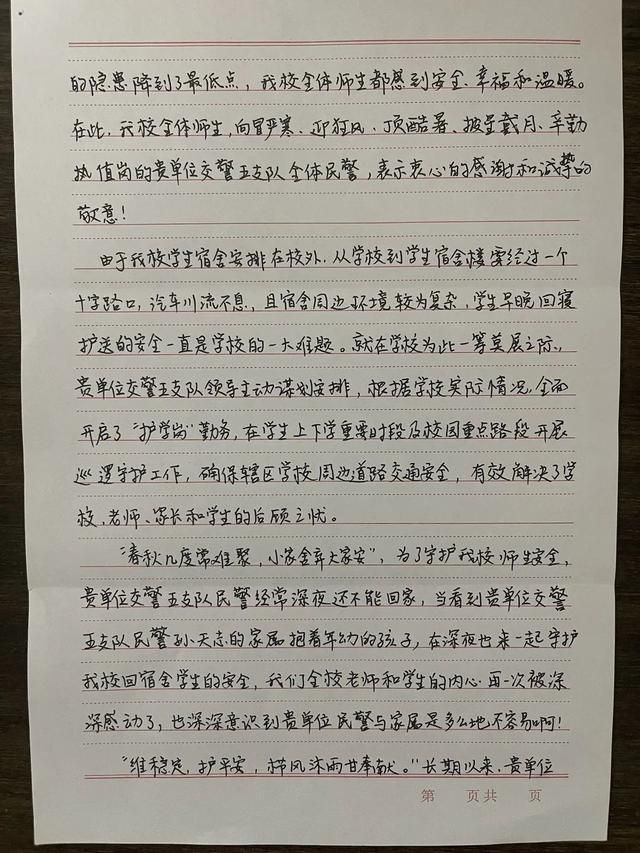 的隐患降到了最低点，我校全体师生都感到安全、幸福和温暖。
在此，我校全体师生，向冒严寒、迎狂风、顶酷暑、披星戴月、辛勤
执值岗的贵单位交警五支队全体民警，表示衷心的感谢和诚挚的
敬意！
由于我校学生宿舍安排在校外，从学校到学生宿舍楼要经过一个
十字路口，汽车川流不息，且宿舍周边环境较为复杂，学生早晚回寝
护送的安全一直是学校的一大难题。就在学校为此一筹莫展之际，
贵单位交警五支队领导主动谋划安排，根据学校实际情况，全面
开启了“护学岗”勤务，在学生上下学重要时段及校园重点路段开展
巡逻守护工作，确保辖区学校周边道路交通安全，有效解决了学
校、老师、家长和学生的后顾之忧。
“春秋几度常难聚，小家舍弃大家安”，为了守护我校师生安全，
贵单位交警五支队民警经常深夜还不能回家，当看到贵单位交警
五支队民警孙天志的家属抱着年幼的孩子，在深夜也来一起守护
我校回宿舍学生的安全，我们全校老师和学生的内心再一次被深
深感动了，也深深意识到贵单位民警与家属是多么地不容易啊！
“维稳定，护平安，栉风沐雨甘奉献。”长期以来，贵单位
第 页共 页